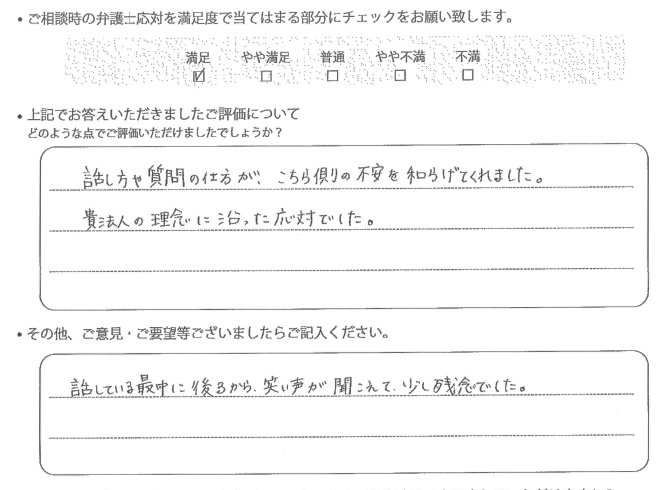 ・ご相談時の弁護士応対を満足度で当てはまる部分にチェックをお願い致します。
満足 やや満足 普通 やや不満 不満
☑ □ □ □ □
・上記でお答えいただきましたご評価について
どのような点でご評価いただけましたでしょうか？
話し方や質問の仕方が、こちら側の不安を和らげてくれました。
貴法人の理念に沿った応対でした。
・その他、ご意見・ご要望等ございましたらご記入ください。
話している最中に後ろから、笑い声が聞こえて、少し残念でした。